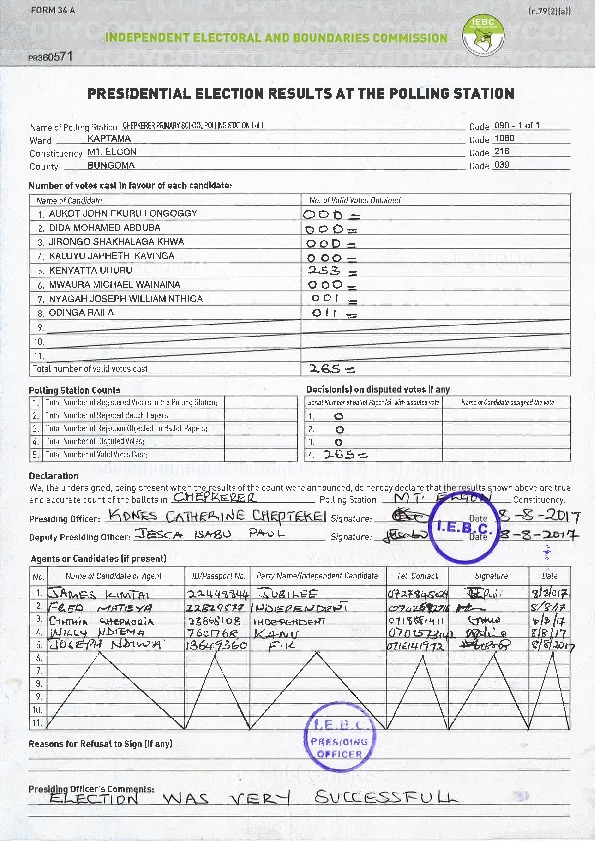 FORM 34 A
(r.79(2)(a))
INDEPENDENT ELECTORAL AND BOUNDARIES COMMISSION
IEBC
PR360571
PRESIDENTIAL ELECTION RESULTS AT THE POLLING STATION
Name of Polling Station CHEPKERER PRIMARY SCHOOL POLLING STATION 1 of 1 Code 090 - 1 of 1
Ward KAPTAMA Code 1080
Constituency MT. ELGON Code 216
County BUNGOMA Code 039
Number of votes cast in favour of each candidate:
Name of Candidate No. of Valid Votes Obtained
1. AUKOT JOHN EKURU LONGOGGY 000 =
2. DIDA MOHAMED ABDUBA 000 =
3. JIRONGO SHAKHALAGA KHWA 000 =
4. KALUYU JAPHETH KAVINGA 000 =
5. KENYATTA UHURU 253 =
6. MWAURA MICHAEL WAINAINA 000 =
7. NYAGAH JOSEPH WILLIAM NTHIGA 001 =
8. ODINGA RAILA 011 =
9.
10.
11.
Total number of valid votes cast 265 =
Polling Station Counts Decision(s) on disputed votes if any
1. Total Number of Registered Voters in the Polling Station; Serial Number of Ballot Paper(s) with disputed vote Name of Candidate assigned the vote
2. Total Number of Rejected Ballot Papers 1. 0
3. Total Number of Rejection Objected To Ballot Papers; 2. 0
4. Total Number of Disputed Votes; 3. 0
5. Total Number of Valid Votes Cast; 4. 265 =
Declaration
We, the undersigned, being present when the results of the count were announced, do hereby declare that the results shown above are true
and accurate count of the ballots in CHEPKERER Polling Station MT. ELGON Constituency.
Presiding Officer: KONES CATHERINE CHEPTEKEI Signature: Date 8-8-2017
Deputy Presiding Officer: JESCA NABU PAUL Signature: Date 8-8-2017
I.E.B.C.
Agents or Candidates (if present)
No. Name of Candidate or Agent ID/Passport No. Party Name/Independent Candidate Tel. Contact Signature Date
1. JAMES KIMTAI 22448344 JUBILEE 8/8/2017
2. FRED MATISYA INDEPENDENT 8/8/17
3. CINTHIA INDEPENDENT 8/8/17
4. WILLY NDIEMA KANU 8/8/17
5. JOSEPH NDIWA 13649360 F.K 0716141972 8/8/2017
6.
7.
8.
9.
10.
11.
I.E.B.C.
PRESIDING
OFFICER
Reasons for Refusal to Sign (if any)
Presiding Officer's Comments:
ELECTION WAS VERY SUCCESSFULL